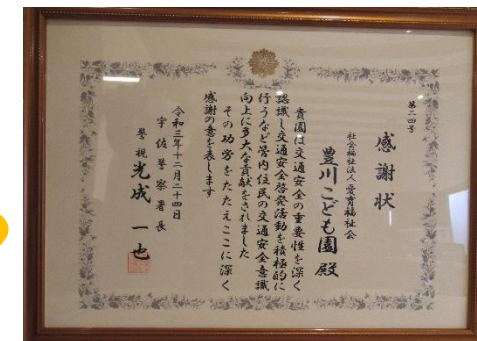 第二四号
感謝状
社会福祉法人愛育福祉会
豊川こども園 殿
貴園は交通安全の重要性を深く
認識し交通安全啓発活動を積極的に
行うなど管内住民の交通安全意識
向上に多大な貢献をされました
その功労をたたえここに深く
感謝の意を表します
令和三年十二月二十四日
宇佐警察署長
警視 光成 一也